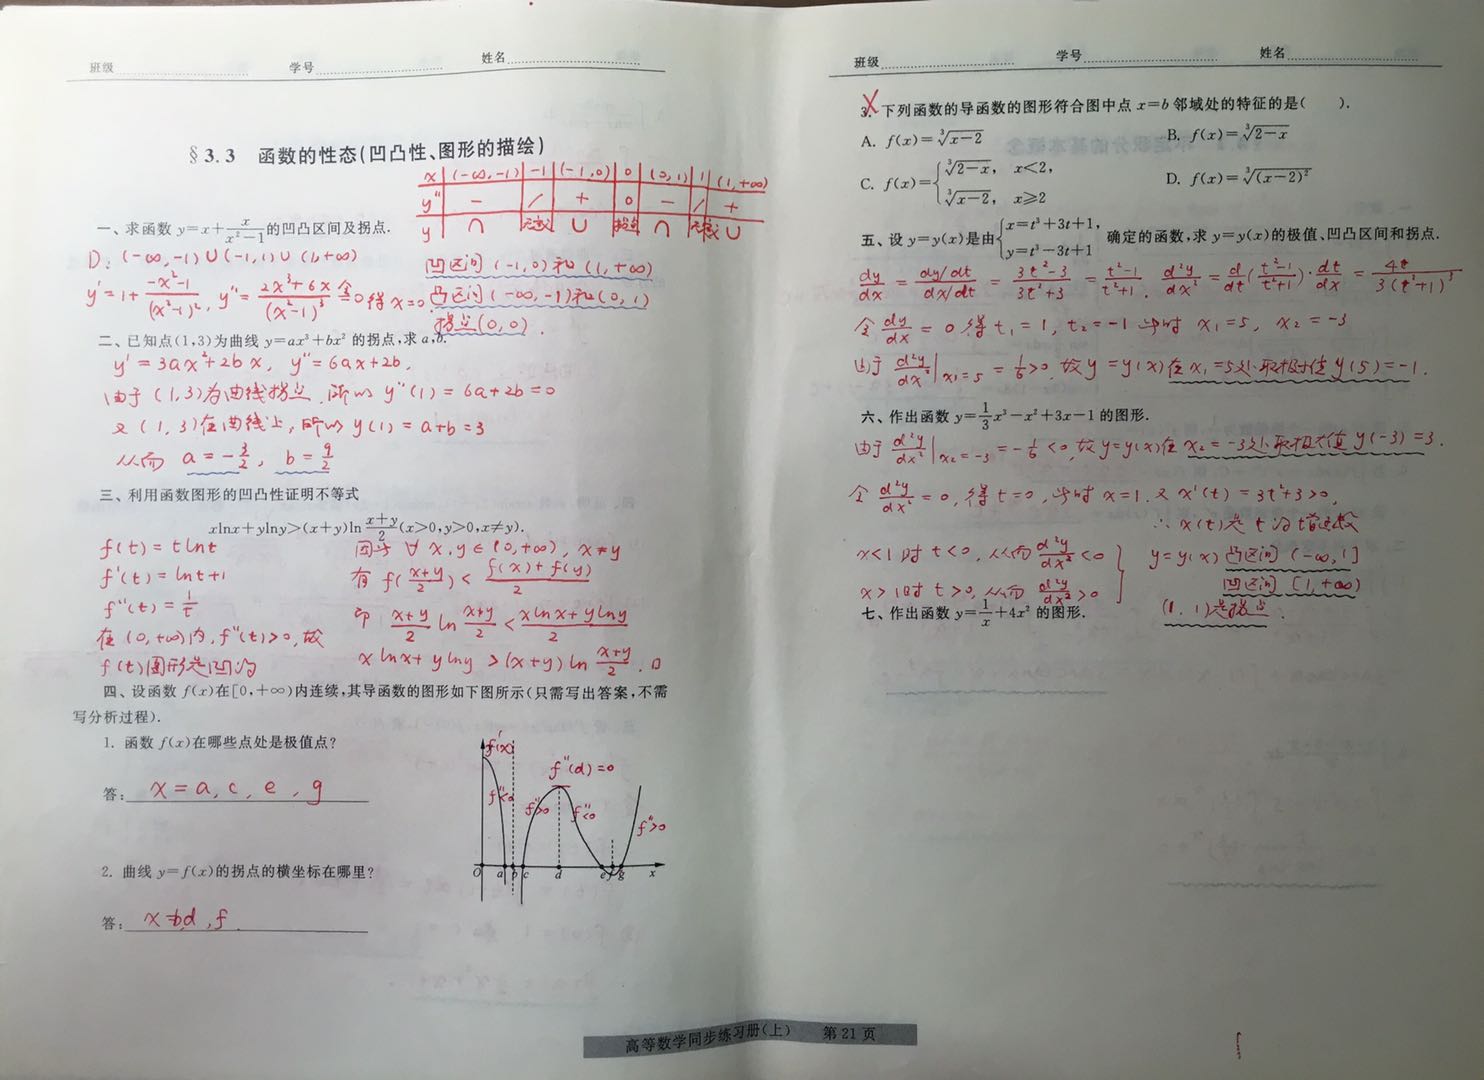 班级 学号 姓名
§3.3 函数的性态(凹凸性、图形的描绘)
x (-∞,-1) -1 (-1,0) 0 (0,1) 1 (1,+∞)
y″ - / + 0 - / +
y ∩ 无定义 ∪ 拐点 ∩ 无定义 ∪
一、求函数 y=x+x/(x²-1) 的凹凸区间及拐点.
D: (-∞,-1)∪(-1,1)∪(1,+∞)
y′=1+(-x²-1)/(x²-1)², y″=(2x³+6x)/(x²-1)³ 令=0 得 x=0
凹区间 (-1,0)和(1,+∞)
凸区间 (-∞,-1)和(0,1)
拐点(0,0).
二、已知点(1,3)为曲线 y=ax³+bx² 的拐点,求 a,b.
y′=3ax²+2bx, y″=6ax+2b,
由于(1,3)为曲线拐点,所以 y″(1)=6a+2b=0
又(1,3)在曲线上,所以 y(1)=a+b=3
从而 a=-3/2, b=9/2
三、利用函数图形的凹凸性证明不等式
xlnx+ylny>(x+y)ln (x+y)/2 (x>0,y>0,x≠y).
f(t)=tlnt
f′(t)=lnt+1
f″(t)=1/t
在(0,+∞)内,f″(t)>0,故
f(t)图形是凹的
因为 ∀x,y∈(0,+∞), x≠y
有 f((x+y)/2)<(f(x)+f(y))/2
即 (x+y)/2 ln (x+y)/2 < (xlnx+ylny)/2
xlnx+ylny>(x+y)ln (x+y)/2. □
四、设函数 f(x)在[0,+∞)内连续,其导函数的图形如下图所示(只需写出答案,不需
写分析过程).
1. 函数 f(x)在哪些点处是极值点?
答: x=a, c, e, g
2. 曲线 y=f(x)的拐点的横坐标在哪里?
答: x=b,d,f.
f′(x)
f″(d)=0
f″<0 f″>0 f″<0 f″>0
O a b c d e f g x
班级 学号 姓名
3. 下列函数的导函数的图形符合图中点 x=b 邻域处的特征的是( ).
A. f(x)=∛(x-2) B. f(x)=∛(2-x)
C. f(x)={∛(2-x), x<2, ∛(x-2), x≥2 D. f(x)=∛((x-2)²)
五、设 y=y(x)是由{x=t³+3t+1, y=t³-3t+1 确定的函数,求 y=y(x)的极值、凹凸区间和拐点.
dy/dx=(dy/dt)/(dx/dt)=(3t²-3)/(3t²+3)=(t²-1)/(t²+1). d²y/dx²=d/dt((t²-1)/(t²+1))·dt/dx=4t/(3(t²+1)³)
令 dy/dx=0 得 t₁=1, t₂=-1 此时 x₁=5, x₂=-3
由于 d²y/dx²|x₁=5 =1/6>0 故 y=y(x)在 x₁=5处取极小值 y(5)=-1.
六、作出函数 y=1/3x³-x²+3x-1 的图形.
由于 d²y/dx²|x₂=-3 =-1/6<0,故 y=y(x)在 x₂=-3处取极大值 y(-3)=3.
令 d²y/dx²=0,得 t=0,此时 x=1.又 x′(t)=3t²+3>0,
∴ x(t)是 t 的增函数
x<1时 t<0,从而 d²y/dx²<0
x>1时 t>0,从而 d²y/dx²>0
y=y(x) 凸区间 (-∞,1]
凹区间 [1,+∞)
(1,1)是拐点.
七、作出函数 y=1/x+4x² 的图形.
高等数学同步练习册(上) 第 21 页